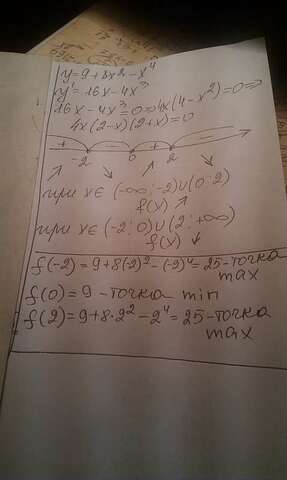 y=9+8x²-x⁴
y'=16x-4x³
16x-4x³=0 ⇒ 4x(4-x²)=0 ⇒
4x(2-x)(2+x)=0
+ - + -
-2 0 2
↗ ↘ ↗ ↘
при x∈ (-∞;-2)∪(0;2)
f(x) ↗
при x∈ (-2;0)∪(2;+∞)
f(x) ↘
f(-2)=9+8(-2)²-(-2)⁴=25-точка
max
f(0)=9-точка min
f(2)=9+8·2²-2⁴=25-точка
max